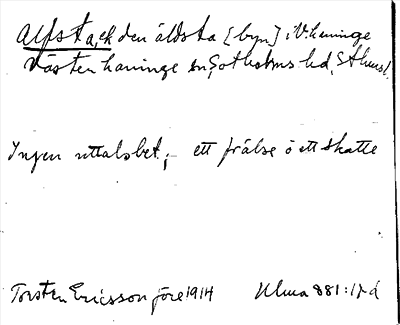 Alfsta, ek den äldsta [byn] i V. haninge
Västerhaninge sn, Sotholms hd, Sthmsl.
Ingen uttalsbet; ett frälse o ett skatte
Torsten Ericsson före 1914 Ulma 881:17 d